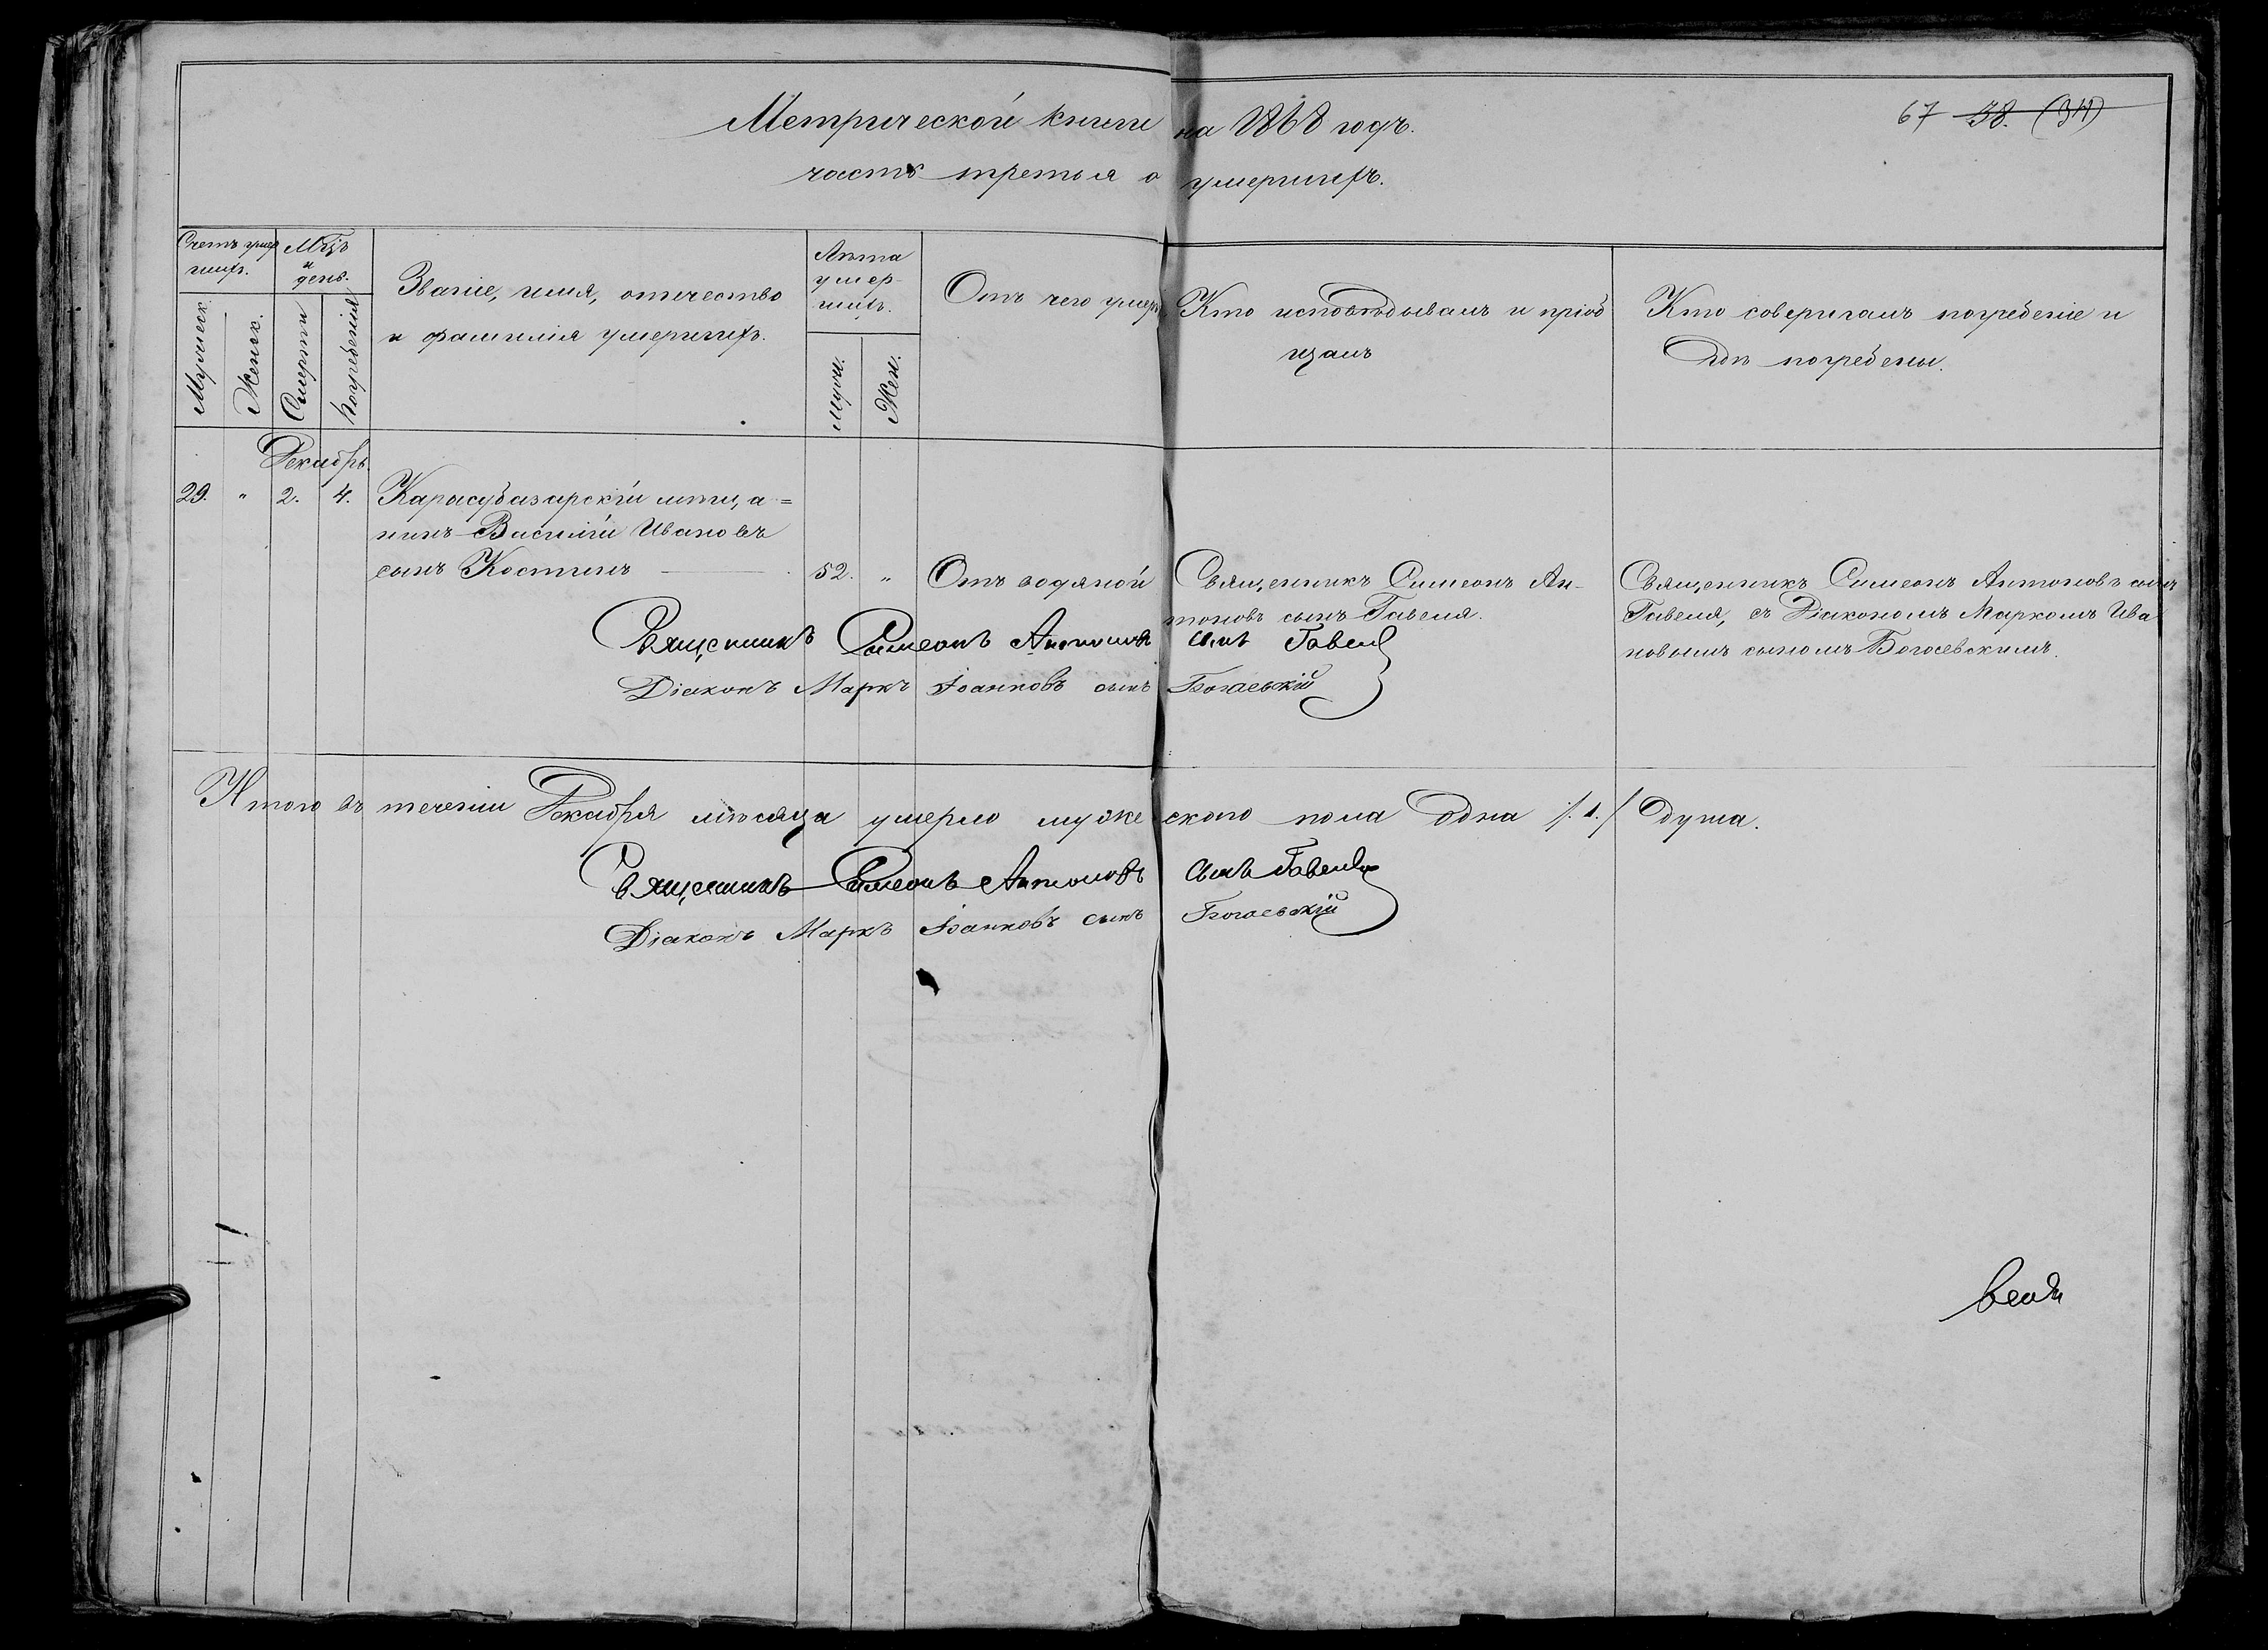 Метрической книги на 1868 годъ.
67 38. (34)
часть третья о умершихъ.
Счетъ умер
шихъ.
Мужеск.
Женск.
Мѣцъ
и
день.
Смерти
Погребенія
Званіе, имя, отчество
и фамилія умершихъ.
Лѣта
умер-
шихъ.
Мужч.
Жен.
Отъ чего умеръ
Кто исповѣдывалъ и пріоб
щалъ
Кто совершалъ погребеніе и
гдѣ погребены.
Декабрь.
29. " 2. 4. Карасубазарскій мѣща=
нинъ Василій Ивановъ
сынъ Костинъ 52. " Отъ водяной
Священникъ Симеонъ Ан-
тоновъ сынъ Гавеля.
Священникъ Симеонъ Антоновъ сынъ
Гавеля, съ Діакономъ Маркомъ Ива
новымъ сыномъ Богаевскимъ.
Священникъ Симеонъ Антоновъ сынъ Гавеля
Діаконъ Маркъ Іоанновъ сынъ Богаевскій
Итого въ теченіи Декабря мѣсяца умерло мужескаго пола одна /.1./ душа.
Священникъ Симеонъ Антоновъ сынъ Гавеля
Діаконъ Маркъ Іоанновъ сынъ Богаевскій